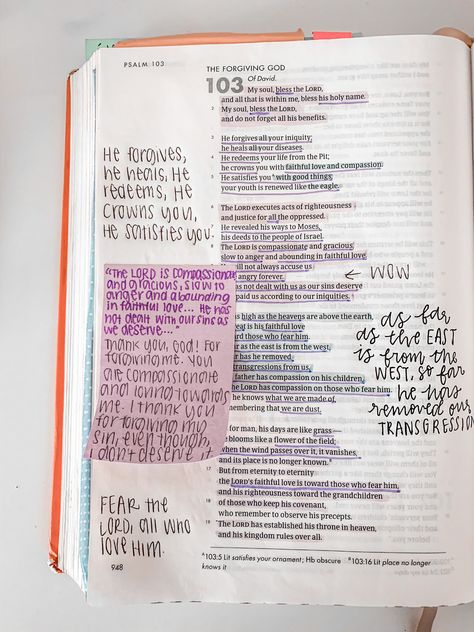 PSALM 103
THE FORGIVING GOD
103 Of David.
My soul, bless the LORD,
and all that is within me, bless his holy name.
2 My soul, bless the LORD,
and do not forget all his benefits.
3 He forgives all your iniquity;
he heals all your diseases.
4 He redeems your life from the Pit;
he crowns you with faithful love and compassion.
5 He satisfies you with good things;
your youth is renewed like the eagle.
6 The LORD executes acts of righteousness
and justice for all the oppressed.
7 He revealed his ways to Moses,
his deeds to the people of Israel.
8 The LORD is compassionate and gracious,
slow to anger and abounding in faithful love.
will not always accuse us
angry forever.
as not dealt with us as our sins deserve
paid us according to our iniquities.
high as the heavens are above the earth,
is his faithful love
those who fear him.
as the east is from the west,
has he removed
transgressions from us.
father has compassion on his children,
the LORD has compassion on those who fear him.
he knows what we are made of,
remembering that we are dust.
for man, his days are like grass—
he blooms like a flower of the field;
when the wind passes over it, it vanishes,
and its place is no longer known.
17 But from eternity to eternity
the LORD's faithful love is toward those who fear him,
and his righteousness toward the grandchildren
18 of those who keep his covenant,
who remember to observe his precepts.
19 The LORD has established his throne in heaven,
and his kingdom rules over all.
HE FORGIVES,
HE HEALS, HE
REDEEMS, HE
CROWNS YOU,
HE SATISFIES YOU.
"THE LORD IS COMPASSIONATE
AND GRACIOUS, SLOW TO
ANGER AND ABOUNDING
IN FAITHFUL LOVE... HE HAS
NOT DEALT WITH OUR SINS AS
WE DESERVE..."
THANK YOU, GOD! FOR
FORGIVING ME. YOU
ARE COMPASSIONATE
AND LOVING TOWARDS
ME. I THANK YOU
FOR FORGIVING MY
SIN, EVEN THOUGH,
I DON'T DESERVE IT.
FEAR THE
LORD, ALL WHO
LOVE HIM.
← WOW
as far
as the EAST
is from the
WEST, so far
he has
removed our
TRANSGRESSION
a 103:5 Lit satisfies your ornament; Hb obscure b 103:16 Lit place no longer
knows it
948